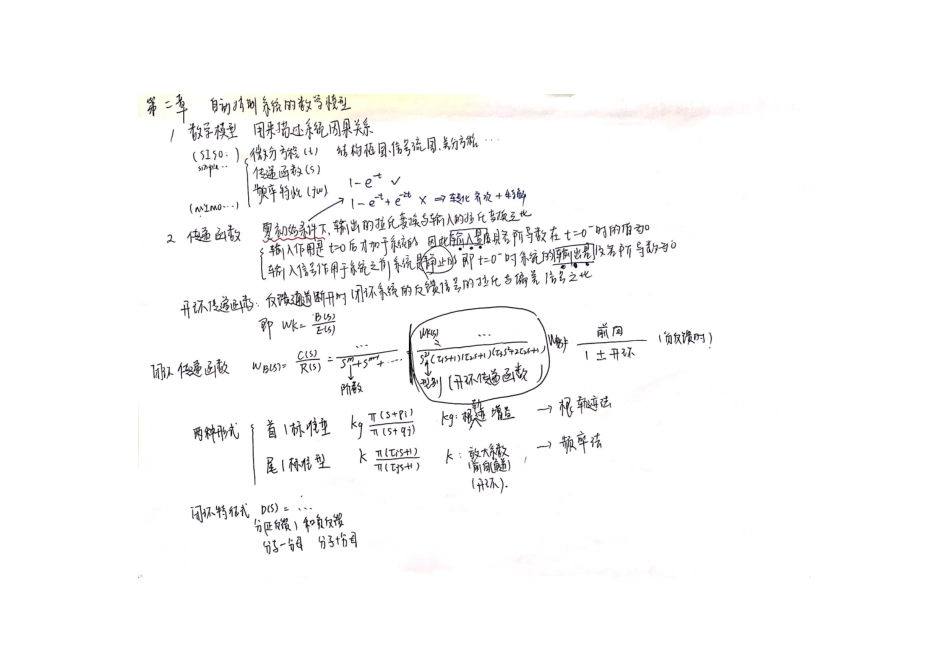 第二章 自动控制系统的数学模型
1 数学模型 用来描述系统因果关系
(SISO:) 微分方程(t) 结构框图.信号流图.差分方程…
simple.. 传递函数(s)
频率特性(jw)
(MIMO…)
1-e^-t ✓
1-e^-t+e^-2t × ⇒ 转化
2 传递函数 零初始条件下,输出的拉氏变换与输入的拉氏变换之比
输入作用是t=0后才加于系统的 因此输入量及其各阶导数在t=0^-时的值为0
输入信号作用于系统之前系统是静止的 即t=0^-时系统的输出量及各阶导数为0
开环传递函数: 反馈通道断开时 闭环系统的反馈信号的拉氏与偏差信号之比
即 Wk = B(s)/E(s)
闭环传递函数 WB(s)= C(s)/R(s) = …/s^m+s^m-1+…
阶数
Wk(s) …
型别 (开环传递函数)
前向/1±开环 (负反馈时)
两种形式 首1标准型 kg π(s+pi)/π(s+qj) kg: 根轨迹增益 → 根轨迹法
尾1标准型 k π(τis+1)/π(τjs+1) k: 放大系数 → 频率法
(前向通道)
(开环).
闭环特征式 D(s) = …
分正反馈 和负反馈
分子-分母 分子+分母